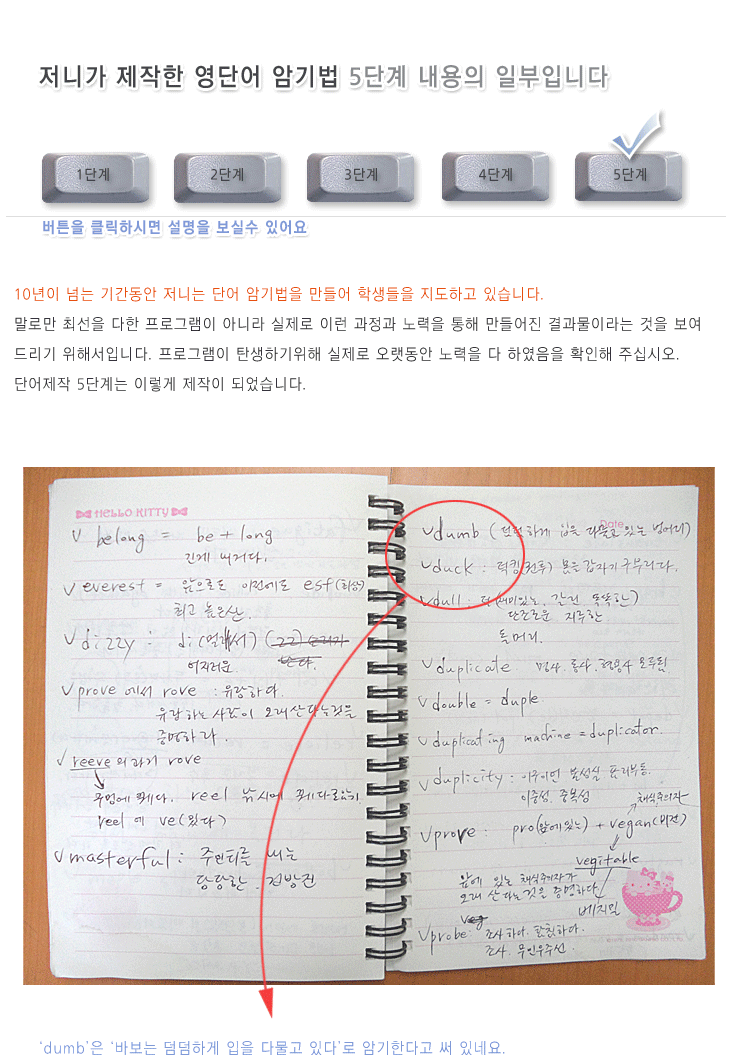 저니가 제작한 영단어 암기법 5단계 내용의 일부입니다
1단계 2단계 3단계 4단계 5단계
버튼을 클릭하시면 설명을 보실수 있어요
10년이 넘는 기간동안 저니는 단어 암기법을 만들어 학생들을 지도하고 있습니다.
말로만 최선을 다한 프로그램이 아니라 실제로 이런 과정과 노력을 통해 만들어진 결과물이라는 것을 보여
드리기 위해서입니다. 프로그램이 탄생하기위해 실제로 오랫동안 노력을 다 하였음을 확인해 주십시오.
단어제작 5단계는 이렇게 제작이 되었습니다.
HELLO KITTY
v belong = be + long
길게 버거다.
v everest = 앞으로도 이전에도 est(최상)
최고 높은산.
v dizzy : di
어지러운
v prove 에서 rove : 유랑하다.
유랑하는 사람이 오래 산다는것을
증명하라.
v reeve의 과거 rove
구멍에 꿰다. reel 낚시에
reel 에 ve(왔다)
v masterful : 주인티를 내는
당당한. 건방진
Date
v dumb ( 덤덤하게 입을 다물고 있는 벙어리)
v duck : 더킹(권투) 몸을 갑자기 구부리다.
v dull : 덜 (재미있는, 갈린 똑똑한)
단조로운 지루한
돌머리.
v duplicate 명사. 동사. 형용사 모두됨
v double = duple
v duplicating machine = duplicator.
v duplicity : 불성실 표리부동.
이중성. 중복성
채식주의자
v prove : pro(앞에있는) + vegan(비건)
vegitable
앞에 있는 채식주의자가
오래 산다는것을 증명하다
베지밀
v probe : 조사하다.
조사. 무인우주선.
'dumb'은 '바보는 덤덤하게 입을 다물고 있다'로 암기한다고 써 있네요.